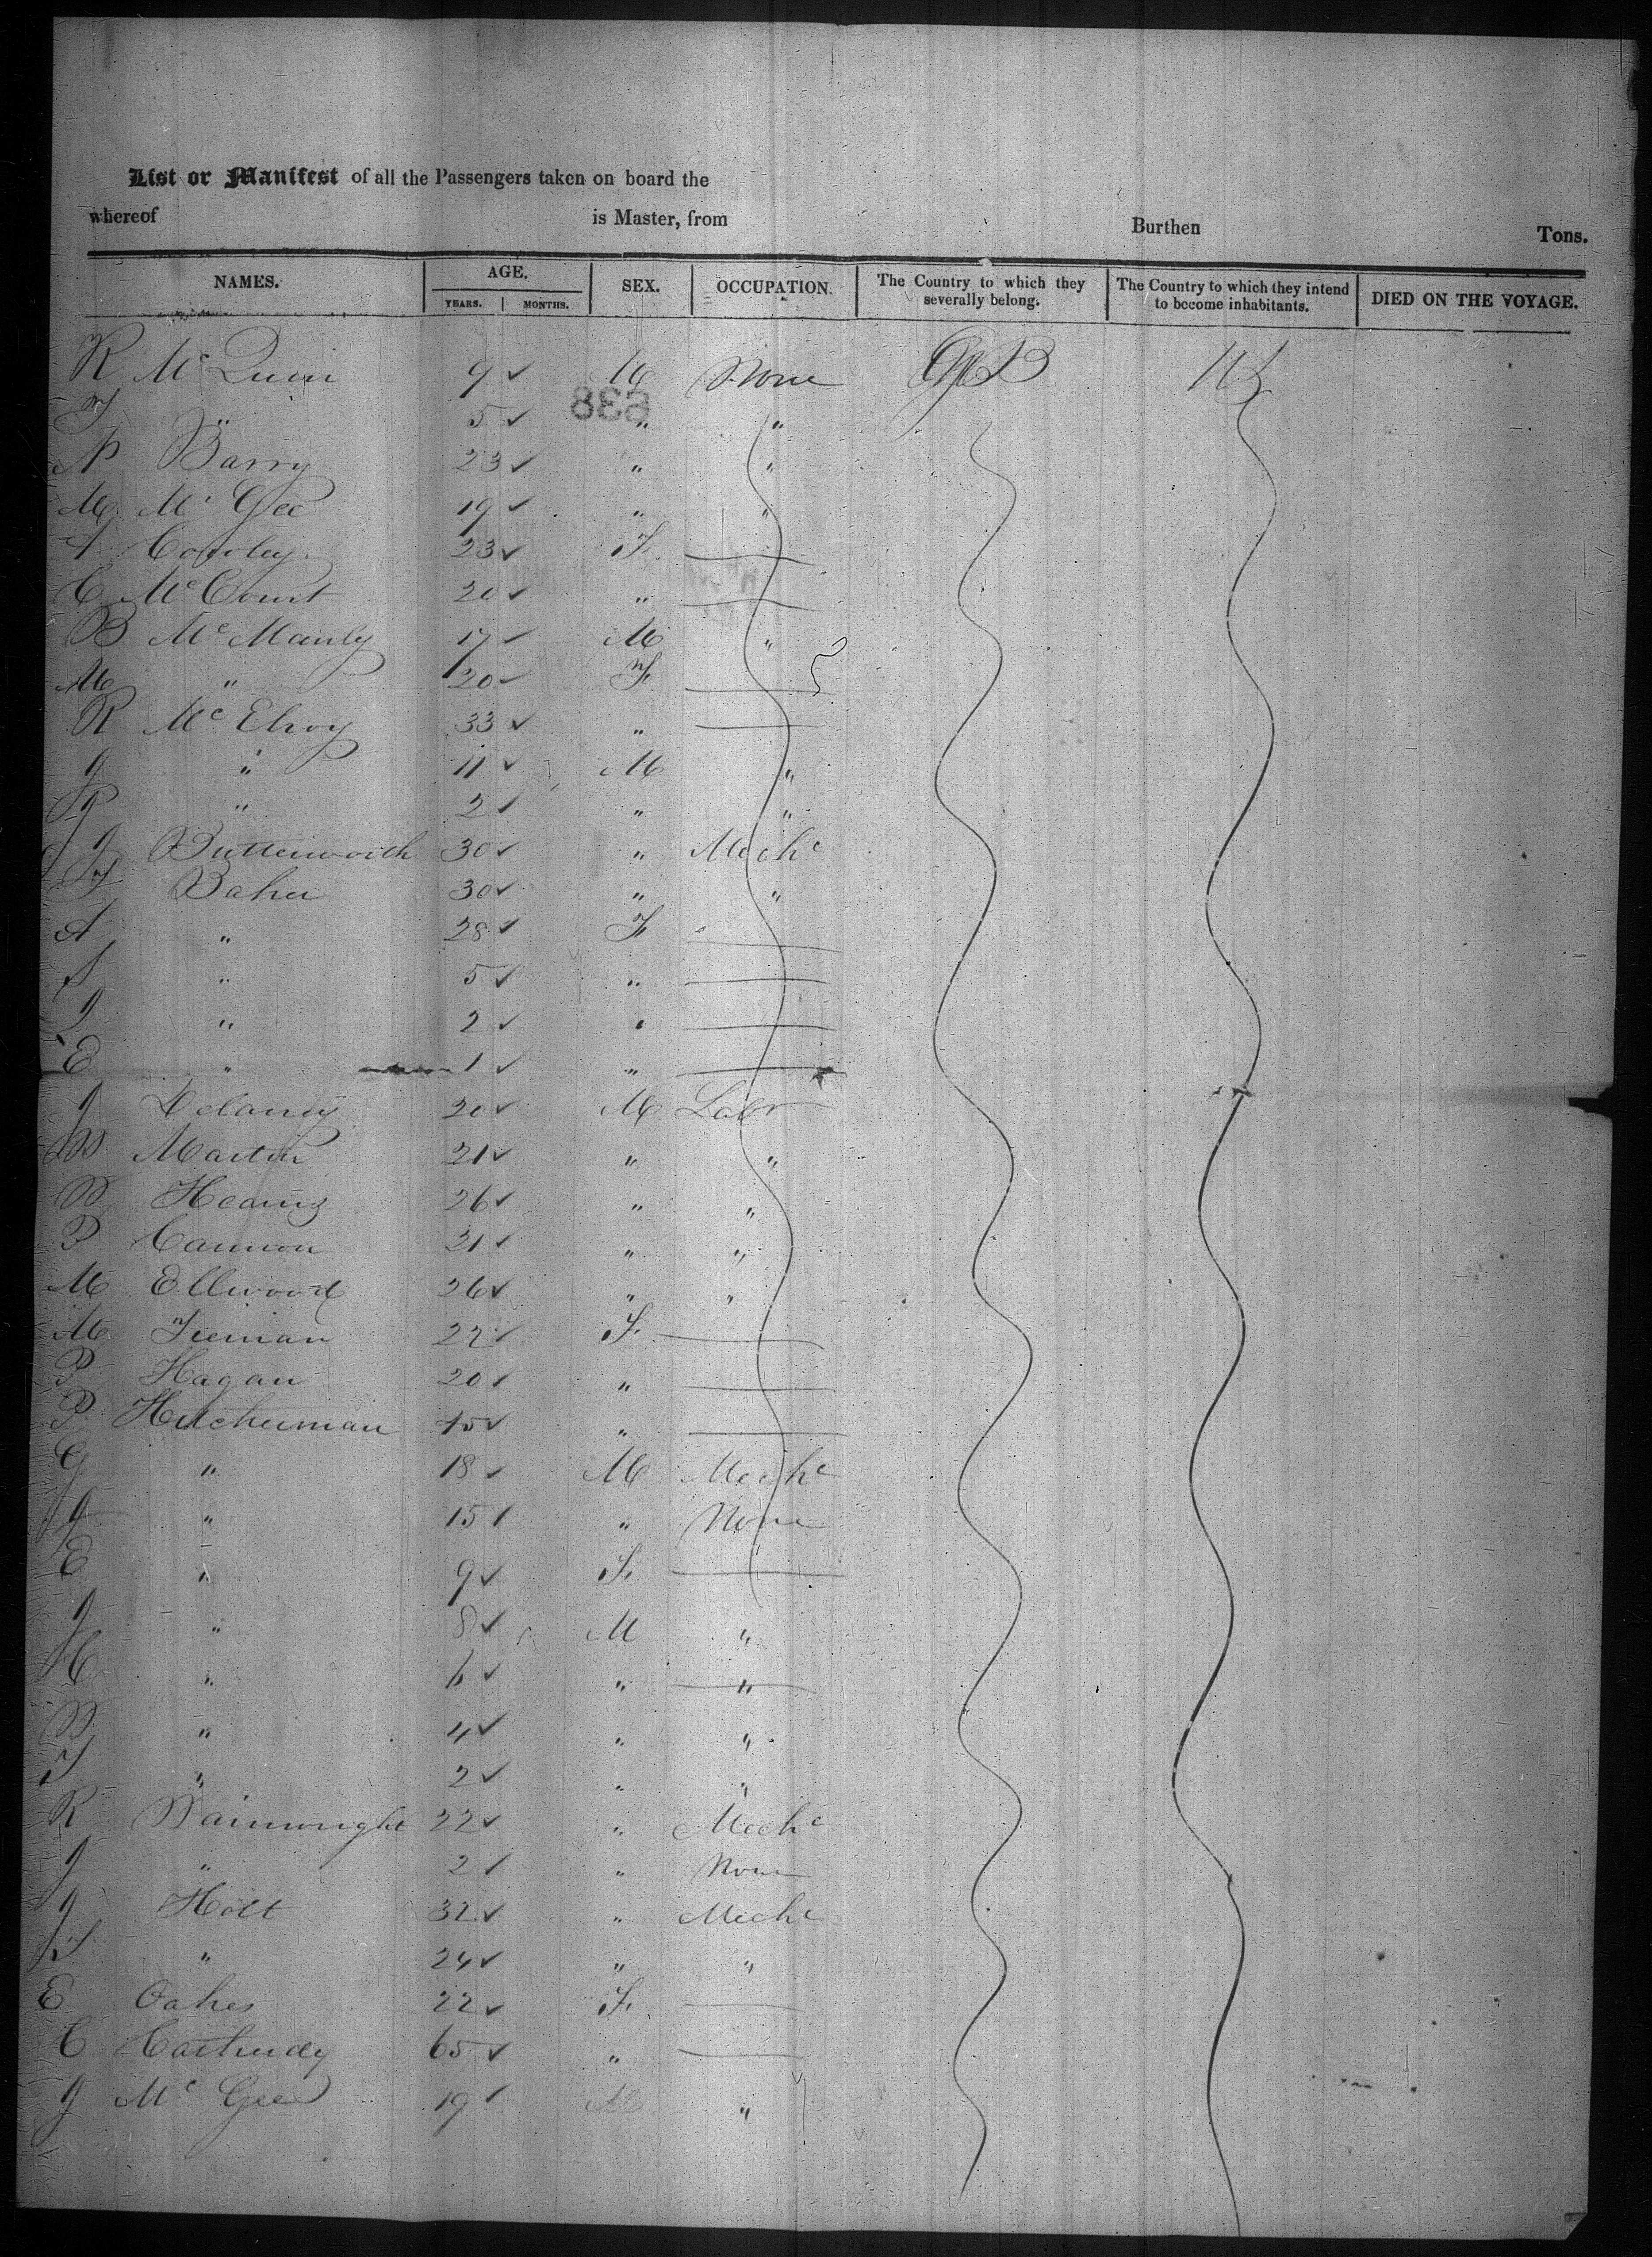 List or Manifest of all the Passengers taken on board the
whereof is Master, from Burthen Tons.
NAMES. AGE. SEX. OCCUPATION. The Country to which they severally belong. The Country to which they intend to become inhabitants. DIED ON THE VOYAGE.
YEARS. MONTHS.
R McQuin 9 ✓ M None GtB US
838
T " 5 ✓ " "
N Barry 23 ✓ " "
M McGee 19 ✓ " "
A Cowley 23 ✓ F
C McCourt 20 ✓ "
B McManly 17 ✓ M "
M " 20 ✓ F
R McElroy 33 ✓ "
J " 11 ✓ M "
P " 2 ✓ " "
J Butterworth 30 ✓ " Mechc
T Baker 30 ✓ " "
A " 28 ✓ F
S " 5 ✓ "
J " 2 ✓ "
E " 1 ✓ "
J Delaney 20 ✓ M Labr
W Martin 21 ✓ " "
B 26 ✓ " "
P Cannon 21 ✓ " "
M Ellwood 26 ✓ " "
M 22 ✓ F
P Hagan 20 ✓ "
P 45 ✓ "
G " 18 ✓ M Mechc
J " 15 ✓ " None
E " 9 ✓ F
J " 8 ✓ M "
C " 6 ✓ " "
B " 4 ✓ " "
T " 2 ✓ " "
R Wainwright 22 ✓ " Mechc
J " 2 ✓ " None
J Holt 32 ✓ " Mechc
T " 24 ✓ " "
E Oakes 22 ✓ F
C 65 ✓ "
J McGee 19 ✓ M "